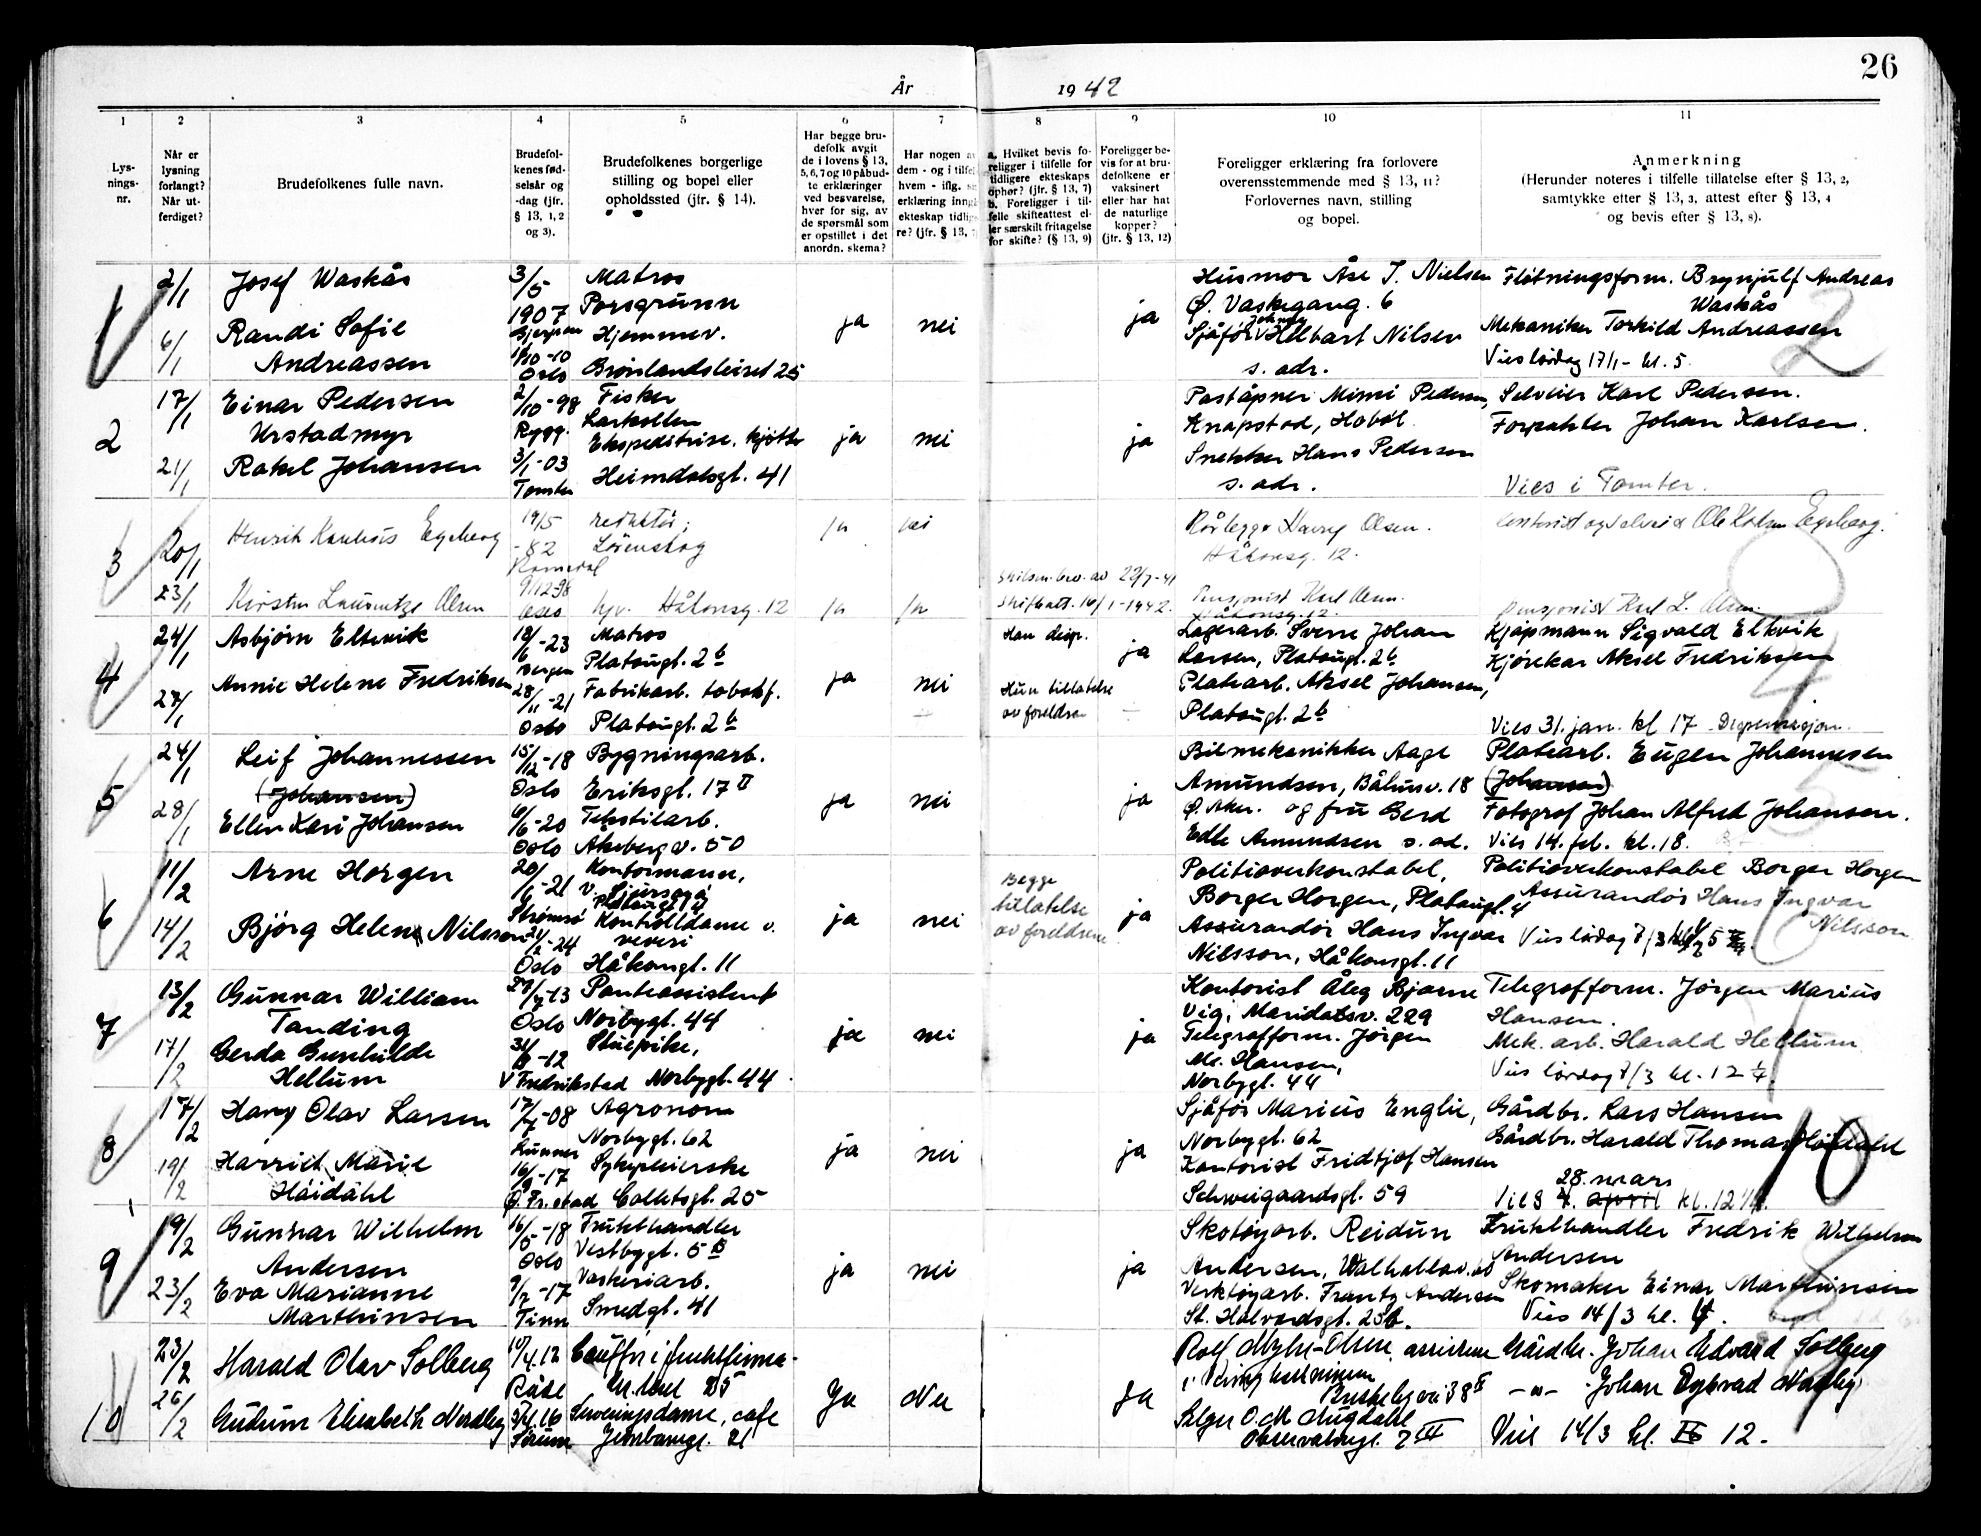 26
År 1942
1 2 3 4 5 6 7 8 9 10 11
Lys-
nings-
nr.
Når er
lysning
forlangt?
Når ut-
ferdiget?
Brudefolkenes fulle navn.
Brudefol-
kenes fød-
selsår og
-dag (jfr.
§ 13, 1, 2
og 3).
Brudefolkenes borgerlige
stilling og bopel eller
opholdssted (jfr. § 14).
Har begge bru-
defolk avgit
de i lovens § 13,
5, 6, 7 og 10 påbud-
te erklæringer
ved besvarelse,
hver for sig, av
de spørsmål som
er opstillet i det
anordn. skema?
Har nogen a
dem - og i tilfel
hvem - iflg. s
erklæring inng
ekteskap tidlig
re? (jfr. § 13, 7
a. Hvilket bevis fo-
religger i tilfelle for
tidligere ekteskaps
ophør? (jfr. § 13, 7)
b. Foreligger i til-
felle skifteattest el-
ler særskilt fritagelse
for skifte? (§ 13, 9)
Foreligger be-
vis for at bru-
defolkene er
vaksinert
eller har hat
de naturlige
kopper?
(jfr. § 13, 12)
Foreligger erklæring fra forlovere
overensstemmende med § 13, 11?
Forlovernes navn, stilling
og bopel.
Anmerkning
(Herunder noteres i tilfelle tillatelse efter § 13, 2,
samtykke efter § 13, 3, attest efter § 13, 4
og bevis efter § 13, 8).
1
2/1
6/1
Josef Waskås
Randi Sofie
Andreassen
3/5
1907
10-10
Oslo
Matros
Porsgrunn
Hjemmev.
Grønlandsleiret 25
ja
nei
ja
Husmor Åse J. Nielsen
Ø. Vaskegang. 6
Sjåfør Helbart Nilsen
s. adr.
Fløtningsform. Brynjulf Andreas
Waskås
Mekaniker Torkild Andreassen
Vies lørdag 17/1 - kl. 5.
2
17/1
21/1
Einar Pedersen
Urstadmyr
Rakel Johansen
2/10-98
Rygg.
3/1-03
Tomter
Fisker
Larkollen
Ekspeditrise, kjøttf
Heimdalsgt. 41
ja
nei
ja
Poståpner Mimi Pedersen,
Knapstad, Hobøl
Snekker Hans Pedersen
s. adr.
Selveier Karl Pedersen.
Forpakter Johan Karlsen.
Vies i Tomter.
3
20/1
23/1
Henrik Egeberg
Kirsten Olsen
19/5
-82
Romedal
9/12-98
Oslo
redaktør,
Lørenskog
hjv. Håkonsg. 12
ja
nei
ja
ja
Skilsm.bev. av 22/7-41
Skifteatt. 16/1-1942.
Rørlegger Harry Olsen.
Håkonsg. 12.
Pensjonist Karl Olsen.
Håkonsg. 12.
Egeberg.
Pensjonist Karl L. Olsen.
4
24/1
27/1
Asbjørn Eltervik
Annie Helene Fredriksen
18/6-23
Bergen
28/11-21
Oslo
Matros
Platougt. 2b
Fabrikarb. tobakf.
Platougt. 2b
ja
nei
Han disp.
Hun tillatelse
av foreldre
ja
Lagerarb. Sverre Johan
Larsen, Platougt. 2b
Platearb. Aksel Johansen,
Platougt. 2b
Kjøpmann Sigvald Eltvik
Kjørekar Aksel Fredriksen
Vies 31. jan. kl 17 - Dispensasjon.
5
24/1
28/1
Leif Johannessen
(Johansen)
Ellen Kari Johansen
15/12-18
Oslo
6/6-20
Oslo
Bygningsarb.
Eriksgt. 17 II
Tekstilarb.
Åkebergv. 50
ja
nei
ja
Bilmekanikker Aage
Amundsen, Båhusv. 18
Ø. Aker. og fru Gerd
Edle Amundsen s. ad.
Platearb. Eugen Johannesen
(Johansen)
Fotograf Johan Alfred Johansen.
Vies 14. feb. kl. 18.
6
11/2
14/2
Arne Horgen
Bjørg Helene Nilsson
20/1-21
Strømsø
-24
Oslo
Kontormann,
Platougt. 4
Kontrolldame v.
veveri
Håkongt. 11
ja
nei
Begge
tillatelse
av foreldrene
ja
Politioverkonstabel,
Borger Horgen, Platougt. 4
Assurandør Hans Ingvar
Nilsson, Håkonsgt. 11
Politioverkonstabel Borger Horgen
Assurandør Hans Ingvar
Nilsson
Vies lørdag 7/3
7
13/2
17/2
Gunnar William
Tanding
Gerda Gunhilde
Hellum
-13
Oslo
-12
V Fredrikstad
Panteassistent
Norbygt. 44
Stuepike,
Norbygt. 44
ja
nei
ja
Kontorist Åleg Bjarne
Vig, Maridalsv. 229
Telegrafform. Jørgen
M. Hansen,
Norbygt. 44
Telegrafform. Jørgen Marius
Hansen.
Mek. arb. Harald Hellum
Vies lørdag 7/3 kl. 12 ¼.
8
17/2
19/2
Harry Olav Larsen
Harriet Marie
Höidahl
-08
Lunner
-17
Ø. Fr.stad
Agronom
Norbygt. 62
Sykepleierske
Colletsgt. 25
ja
nei
ja
Sjåfør Marius Englie,
Norbygt. 62
Kontorist Fridtjof Hansen
Schweigaardsgt. 59
Gårdbr. Lars Hansen
Gårdbr. Harald Thomas Höidahl
28. mars
Vies 4. april kl. 12 ¼.
9
19/2
23/2
Gunnar Wilhelm
Andersen
Eva Marianne
Marthinsen
16/5-18
Oslo
-17
Tinn
Frukthandler
Vestbygt. 5 B
Vaskeriarb.
Smedgt. 41
ja
nei
ja
Skotøyarb. Reidun
Andersen, Walhallav.
Verktøyarb. Frantz Andersen
St. Halvardsgt. 23b.
Frukthandler Fredrik Wilhelm
Andersen
Skomaker Einar Marthinsen
Vies 14/3 kl. 4.
10
23/2
26/2
Harald Olav Solberg
Gudrun Elisabeth Nordby
10/4.12
Råde
Sørum
i fruktfirma.
Serveringsdame, cafe
Jernbanegt. 21
Ja
Nei
Ja
Rolf
38 II
Observatorigt. 2 III
Gårdbr. Johan Edvard Solberg
- " - Johan Nordby
Vies 14/3 kl. 12.